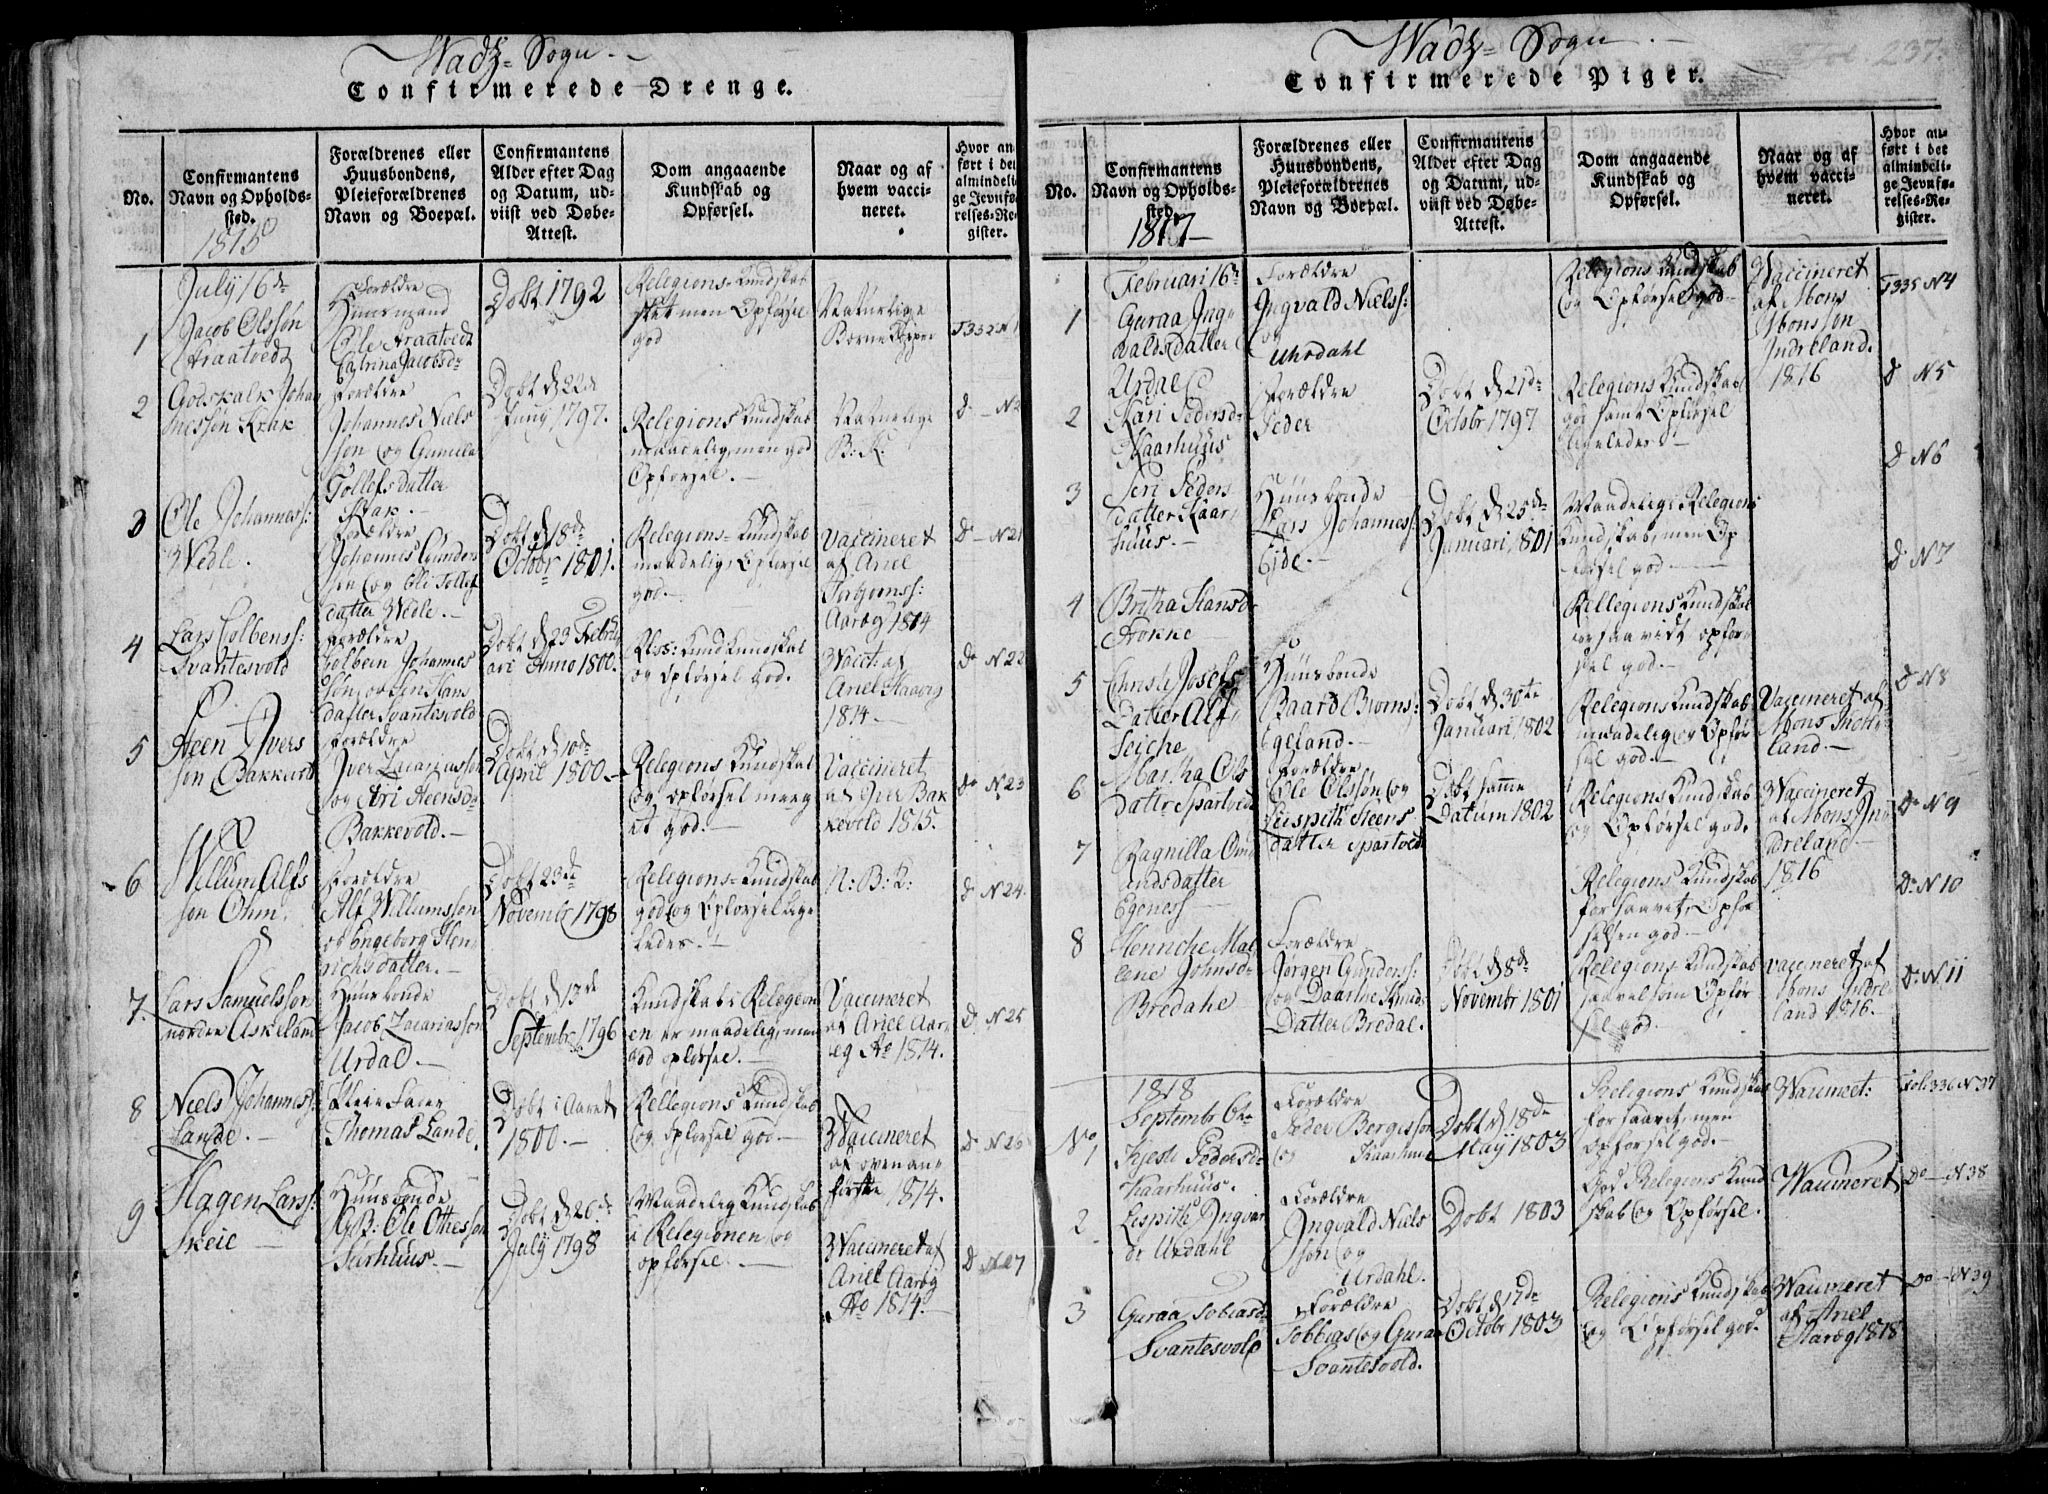 Wadz-Sogn.
Confirmerede Drenge.
No.
Confirmantens
Navn og Opholds-
sted.
1815
Forældrenes eller
Huusbondens,
Pleieforældrenes
Navn og Boepæl.
Confirmantens
Alder efter Dag
og Datum, ud-
viist ved Døbe-
Attest.
Dom angaaende
Kundskab og
Opførsel.
Naar og af
hvem vacci-
neret.
Hvor an-
ført i det
almindeli-
ge Jevnfø-
relses-Re-
gister.
July 16de
1
Jacob Olssøn
Forældre
Huusmand
Ole
Catrina Jacobsdr
Døbt 1792
Relegions-Kundskab
slet men Opførsel
god
Naturlige
Børnekopper
F332 N1
2
Godskalk Johan
nessøn Krak
Forældre
Johannes Niels
søn og Gunnila
Tollefsdatter
Krak.
Døbt d 22de
Juny 1797.
Relegions Kundskab
maadelig, men god
Opførsel.
Naturlige
B. K.
Do - N2
3
Ole Johanness:
Wedle.
Forældre
Johannes Gunders
søn og Eli Tollefs
datter Wedle.
Døbt d 18de
Octobr 1801.
Relegions-Kundskab
maadelig, Opførsel
god.
Vaccineret
af Ariel
Aarøg 1814
Do - N21
4
Lars Colbenss:
Svantesvold
Forældre
Colbein Johannes
søn og
datter Svantesvold
Døbt d 23 Febru
ari Anno 1800.
Kundskab
og Opførsel god.
Vacct. af
Ariel Aarøg
1814.
Do N22
5
Steen Ivers
søn Bakkevold
Forældre
Iver Zacariassøn
og Ari Steensdr
Bakkevold.
Døbt d 10de
April 1800.
Relegions Kundskab
og Opførsel meeg
et god.
Vaccineret
af Iver Bak
kevold 1815.
Do N23
6
Willum Alfs
søn Ohm.
Forældre
Alf Willumssøn
og Engeborg Hen
richsdatter.
Døbt 23de
Novembr 1798
Relegions-Kundskab
god og Opførsel lige
ledes.
N: B: K:
Do N24
7.
Lars Samuelssøn
nordre Askeland
Huusbonde
Jacob Zacariassøn
Urdal.
Døbt d 13de
Septembr 1796
Kundskab i Relegion
en er maadelig, men
god opførsel.
Vaccineret
af Ariel Aar
øg Ao 1814.
Do N25
8
Niels Johanness:
Lande.
Pleie Fader
Thomas Lande.
Døbt i Aaret
1800.
Rellegions Kundskab
og Opførsel god.
Vaccineret
af oven an
førte 1814.
Do N26
9
Hagen Larss:
Skeie
Huusbonde
Ole Othessøn
Døbt d 26de
July 1798
Maadelig Kundskab
i Relegionen og
opførsel.
Vaccineret af
Ariel Aarøg
Ao 1814.
Do N27
Wadz-Sogn.
237.
Confirmerede Piger.
No.
Confirmantens
Navn og Opholds-
sted.
1817
Forældrenes eller
Huusbondens,
Pleieforældrenes
Navn og Boepæl.
Confirmantens
Alder efter Dag
og Datum, ud-
viist ved Døbe-
Attest.
Dom angaaende
Kundskab og
Opførsel.
Naar og af
hvem vacci-
neret.
Hvor an-
ført i det
almindeli-
ge Jevnfø-
relses-Re-
gister.
Februari 16de
1
Guraa Ing
valdsdatter
Urdal
Forældre
Ingvald Niels:
og
Uhrdahl
Relegions Kundskab
og Opførsel god
Vaccineret
af Mons
Monssøn
Indreland.
1816
F335 N4
2
Kari Pedersdr
Kaarhuus
Forældre
Peder
Døbt d 21de
Octobr 1797
Relegions Kundskab
god samt Opførsel
ligeledes.
Do N5
3
Seri Peders
datter Kaar
huus.
Huusbonde
Lars Johanness:
Eide.
Døbt d 25de
Januari 1801
Maadelig Relegions
Kundskab, men Op
førsel god
Do N6
4
Britha Hansdr
Rellegions Kundskab
opfør
sel god.
Do N7
5
Christi Josefs
Datter Alf
seiche
Huusbonde
Baard Biørns:
Egeland.
Døbt d 30te
Januari 1802
Relegions Kundskab
maadelig og Opfør
sel god.
Vaccineret af
Mons
land.
Do N8
6
Martha Ols
datter Spartved
Forældre
Ole Olssøn og
Lispith Steens
datter Spartved
Døbt samme
Datum 1802
Relegions Kundskab
og Opførsel god.
Vaccineret
af Mons In
dreland.
1816
Do N9
7
Ragnilla
undsdatter
Egeness
Relegions Kundskab
forsaavet, Opfør
selsen god.
Do N10
8
Henriche Mal
lene Johnsdr
Bredahe
Forældre
Jørgen Gunderss:
og Daarthe Knuds
Datter Bredal.
Døbt d 8de
Novembr 1801
Relegions Kundskab
saavelsom Opfør
sel god.
Vaccineret af
Mons Indre
land 1816.
Do N11
1818
Septembr
No 1
Kjesti Pedersdr
Kaarhuus.
Forældre
Peder Borgessøn
og Kaarhuus
Døbt d 18de
May 1803
Relegions Kundskab
forsaavet, men
Opførsel god.
Vaccinet:
Fol: 336 N37
2
Lispith Ingvar
dr Urdahl
Forældre
Ingvald Niels
søn og
Urdahl.
Døbt 1803
God Relegions Kund
skab og Opførsel.
Vaccineret
Do - N38
3
Guraa Tobiasdr
Svantesvold
Forældre
Tobbias og Guraa
Svantesvold.
Døbt d 17de
Octobr 1803
Relegions Kundskab
og Opførsel god.
Vaccineret
af Ariel
Aarøg 1818
Do - N39